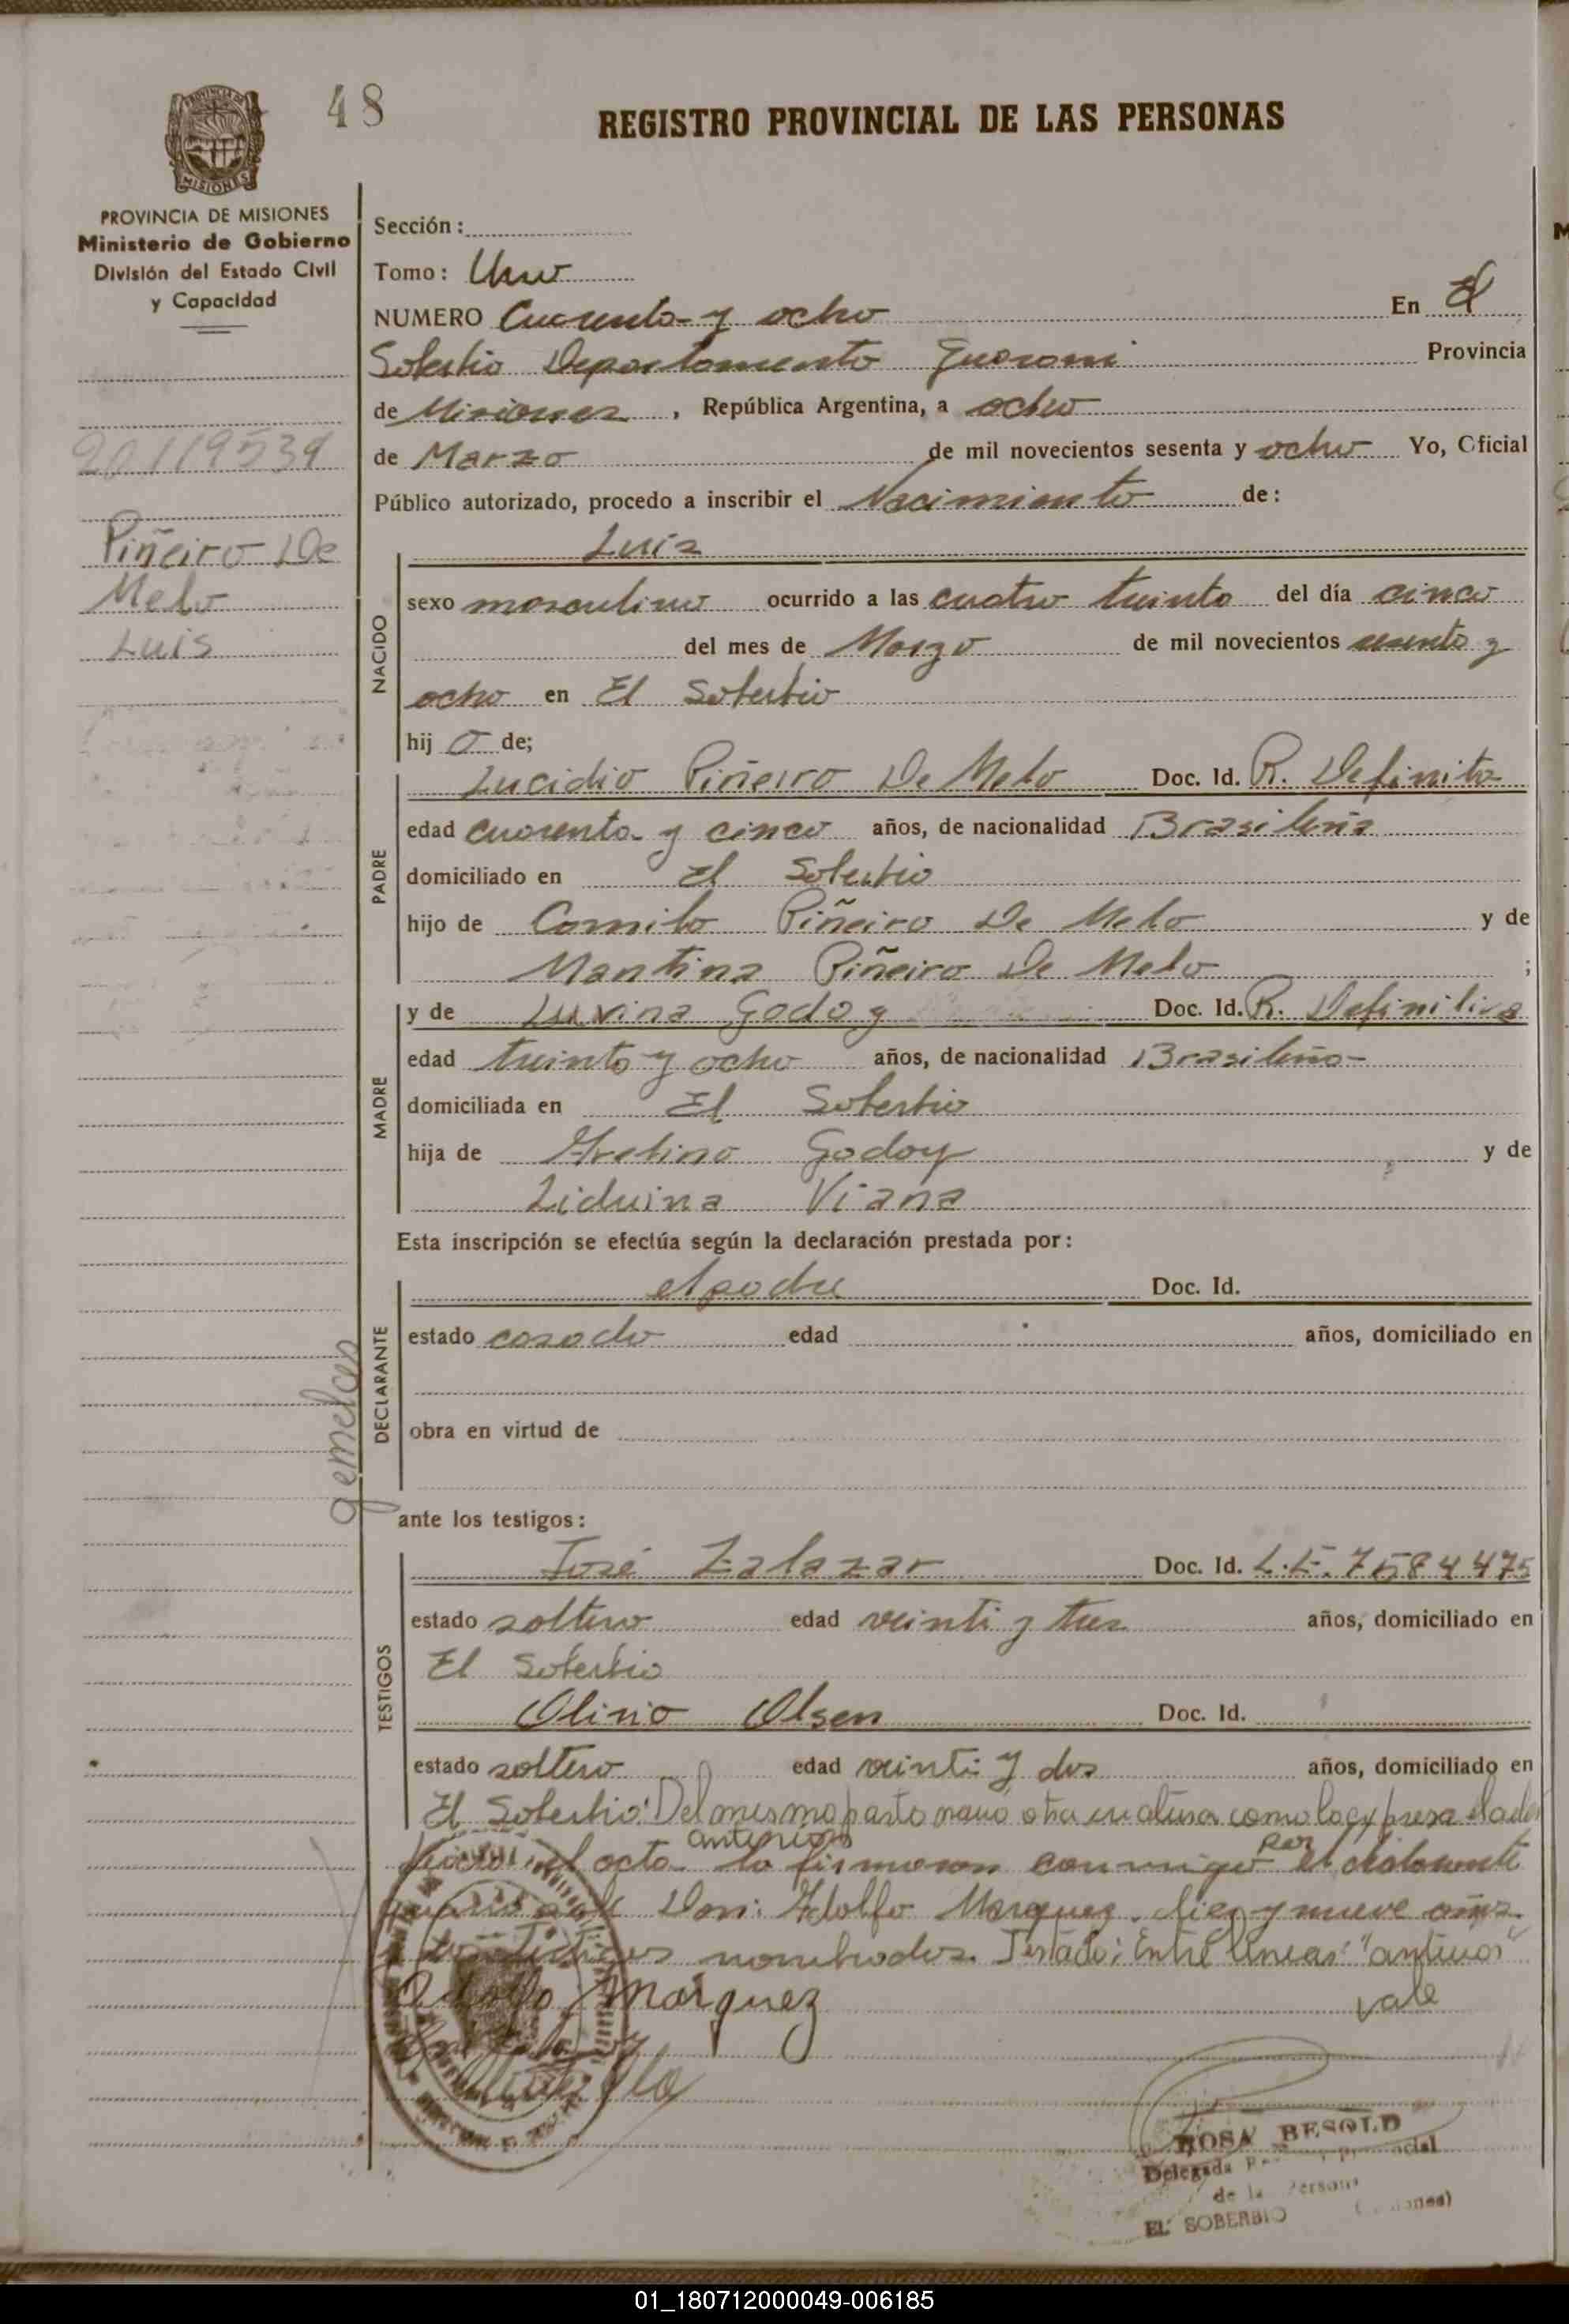 48
REGISTRO PROVINCIAL DE LAS PERSONAS
MISIONES
PROVINCIA DE MISIONES
Ministerio de Gobierno
División del Estado Civil
y Capacidad
20119539
Piñeiro De
Melo
Luis
gemelas
Sección:
Tomo: Uno
NUMERO Cuarenta y ocho En El
Soberbio Departamento Guarani Provincia
de Misiones, República Argentina, a ocho
de Marzo de mil novecientos sesenta y ocho Yo, Oficial
Público autorizado, procedo a inscribir el Nacimiento de:
NACIDO
Luis
sexo masculino ocurrido a las cuatro treinta del día cinco
del mes de Marzo de mil novecientos sesenta y
ocho en El Soberbio
hij o de;
PADRE
Lucidio Piñeiro De Melo Doc. Id. R. Definita
edad cuarenta y cinco años, de nacionalidad Brasileña
domiciliado en El Soberbio
hijo de Camilo Piñeiro De Melo y de
Mantina Piñeiro De Melo ;
MADRE
y de Luvina Godoy Doc. Id. R. Definitiva
edad treinta y ocho años, de nacionalidad Brasileña
domiciliada en El Soberbio
hija de Godoy y de
Liduina Viana
Esta inscripción se efectúa según la declaración prestada por:
DECLARANTE
el padre Doc. Id.
estado casado edad años, domiciliado en
obra en virtud de
ante los testigos:
TESTIGOS
José Zalazar Doc. Id. L.E. 7584475
estado soltero edad veinti y tres años, domiciliado en
El Soberbio
Olinio Olsen Doc. Id.
estado soltero edad veinti y dos años, domiciliado en
El Soberbio: Del mismo parto nació otra criatura como lo expresa el
anterior por
acta la firmaron conmigo el declarante
Don: Adolfo Marquez. diez y nueve años
testigos nombrados. Testado: Entre lineas: "anterior"
Adolfo Marquez vale
ROSA BESOLD
Delegada
de la
EL SOBERBIO
01_180712000049-006185